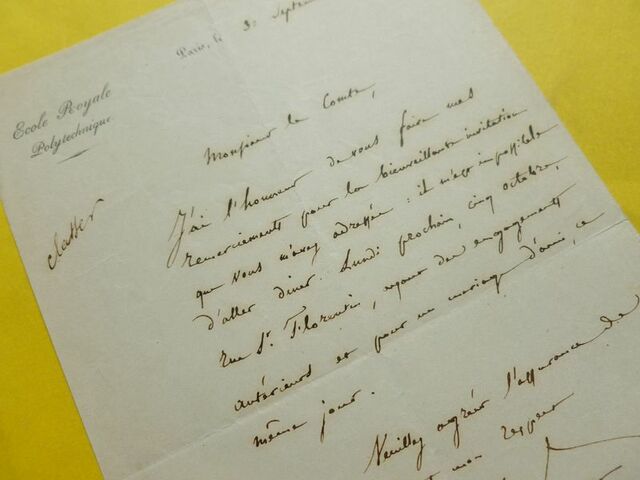 Ecole Royale
Polytechnique
Paris, le 30 Septem
Monsieur le Comte,
classer
J'ai l'honneur de vous faire mes
remerciements pour la bienveillante invitation
que vous m'avez adressée : il m'est impossible
d'aller diner Lundi prochain, cinq octobre,
rue St. Florentin, ayant des engagements
antérieurs et pour un mariage d'ami, ce
même jour.
Veuillez agréer l'assurance de
mon respect